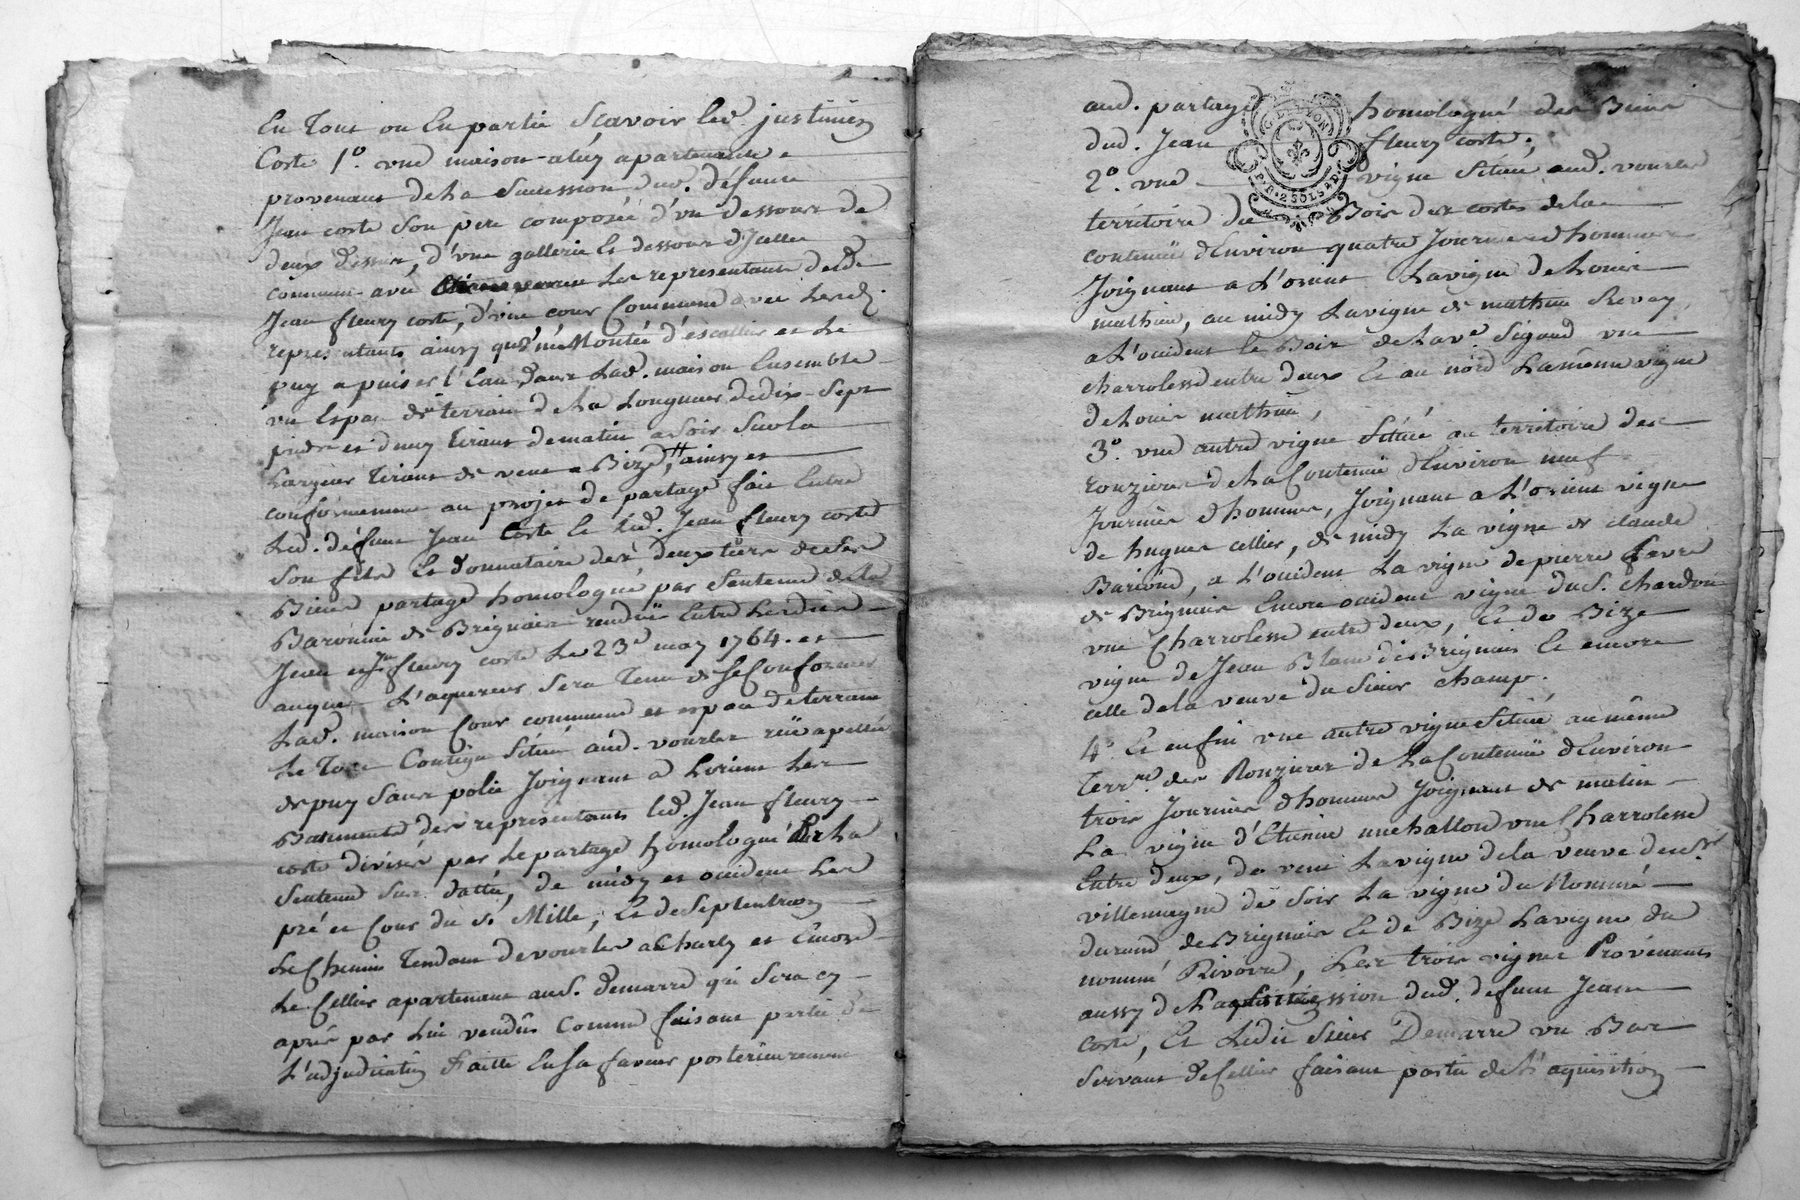 En Tout ou En partie Scavoir led. justinien
Coste 1°. une maison a luy apartenante
provenant de la Succession dud. défunt
Jean coste son pere composée d'un dessous de
deux dessus, d'une gallerie Et dessous d'Icelle
commun avec les representants dud.
Jean fleury coste, d'une cour Commune avec Lesd.
representants, ainsy qu'une Montée d'escallier et Le
puy a puiser l'Eau dans Lad. maison Ensemble
un Espace de terrain de La Longueur de dix-sept
pieds et demy tirant de matin a Soir Sur la
Largeur tirant de vent a Bize, ainsy et
conformement au projet de partage fait Entre
Led. défunt Jean Coste Et Led. Jean fleury coste
Son fils Et donnataire des deux tiers de Ses
Biens partage homologué par Sentence de la
Baronnie de Brignais rendüe Entre Lesdits
Jean et Jn fleury coste Le 23e may 1764. et
auquel L'aquereur Sera Tenu de se Conformer
Lad. maison Cour commune et espace de terrain
Le Tout Contigu Situé aud. vourles rüe apellée
de puy Sans polie Joignant a Lorient Les
Batiments des representants led. Jean fleury
coste divisés par Le partage homologué Par La
Sentence Sus dattée, de midy et occident Les
pré et Cour du Sr. Mille, Et de Septentrion
Le Chemin Tendant de vourles a Charly et Encore
Le Cellier apartenant aud. Demarre qui Sera cy
aprés par Lui vendûs Comme faisant partie de
L'adjudication Faitte En Sa faveur posterieurement
aud. partage homologué des Biens
dud. Jean fleury coste;
2°. une vigne Située aud. vourles
térritoire du Bois des costes de la
contenüe d'Environ quatre Journées d'hommes
Joignant a L'orient La vigne de Louis
mathieu, au midy La vigne de mathieu Revay
a L'occident le Bois de La ve. Sigaud une
charrolesse entre deux Et au nord La même vigne
de Louis mathieu,
3°. une autre vigne Située au territoire des
ronzieres de La Contenüe d'Environ neuf
Journées d'hommes, Joignant a L'orient vigne
de hugues cellier, de midy La vigne de claude
Bariond, a L'occident La vigne de pierre favre
de Brignais Encore occident vigne du S. Chardon
une Charrolesse entre deux, Et de Bize
vigne de Jean Blanc de Brignais Et encore
celle de la veuve du Sieur Champ.
4°. Et enfin une autre vigne Située au même
Terr.re des Ronzieres de La Contenüe d'Environ
trois Journées d'hommes Joignant de matin
La vigne d'Etienne une Charrolesse
Entre deux, de vent La vigne de la veuve
villemagne de Soir La vigne du Nommé
durand de Brignais Et de Bize La vigne du
nommé Rivoire, Les trois vignes Provenants
aussy de La Succession dud. defunt Jean
coste, Et Ledit Sieur Demarre un Bas
Servant de Cellier faisant partie de L'aquisition
G. DE LYON
P. P. 2 SOLS 4 D.